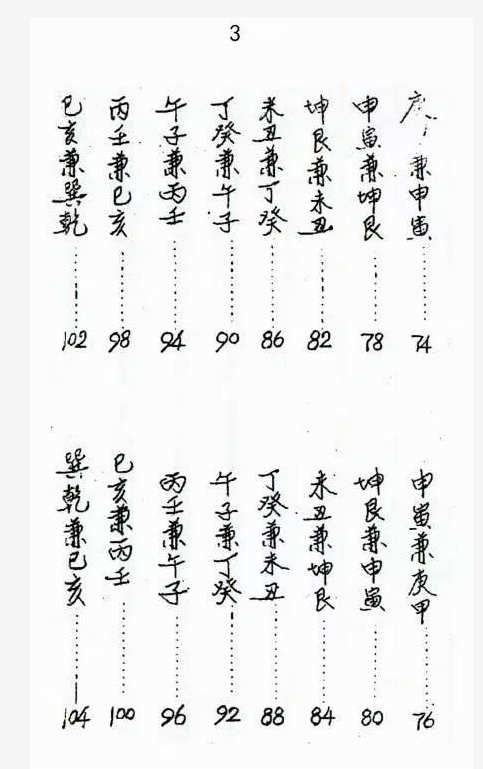 3
庚 兼申寅……74
申寅兼坤艮……78
坤艮兼未丑……82
未丑兼丁癸……86
丁癸兼午子……90
午子兼丙壬……94
丙壬兼巳亥……98
巳亥兼巽乾……102
申寅兼庚甲……76
坤艮兼申寅……80
未丑兼坤艮……84
丁癸兼未丑……88
午子兼丁癸……92
丙壬兼午子……96
巳亥兼丙壬……100
巽乾兼巳亥……104